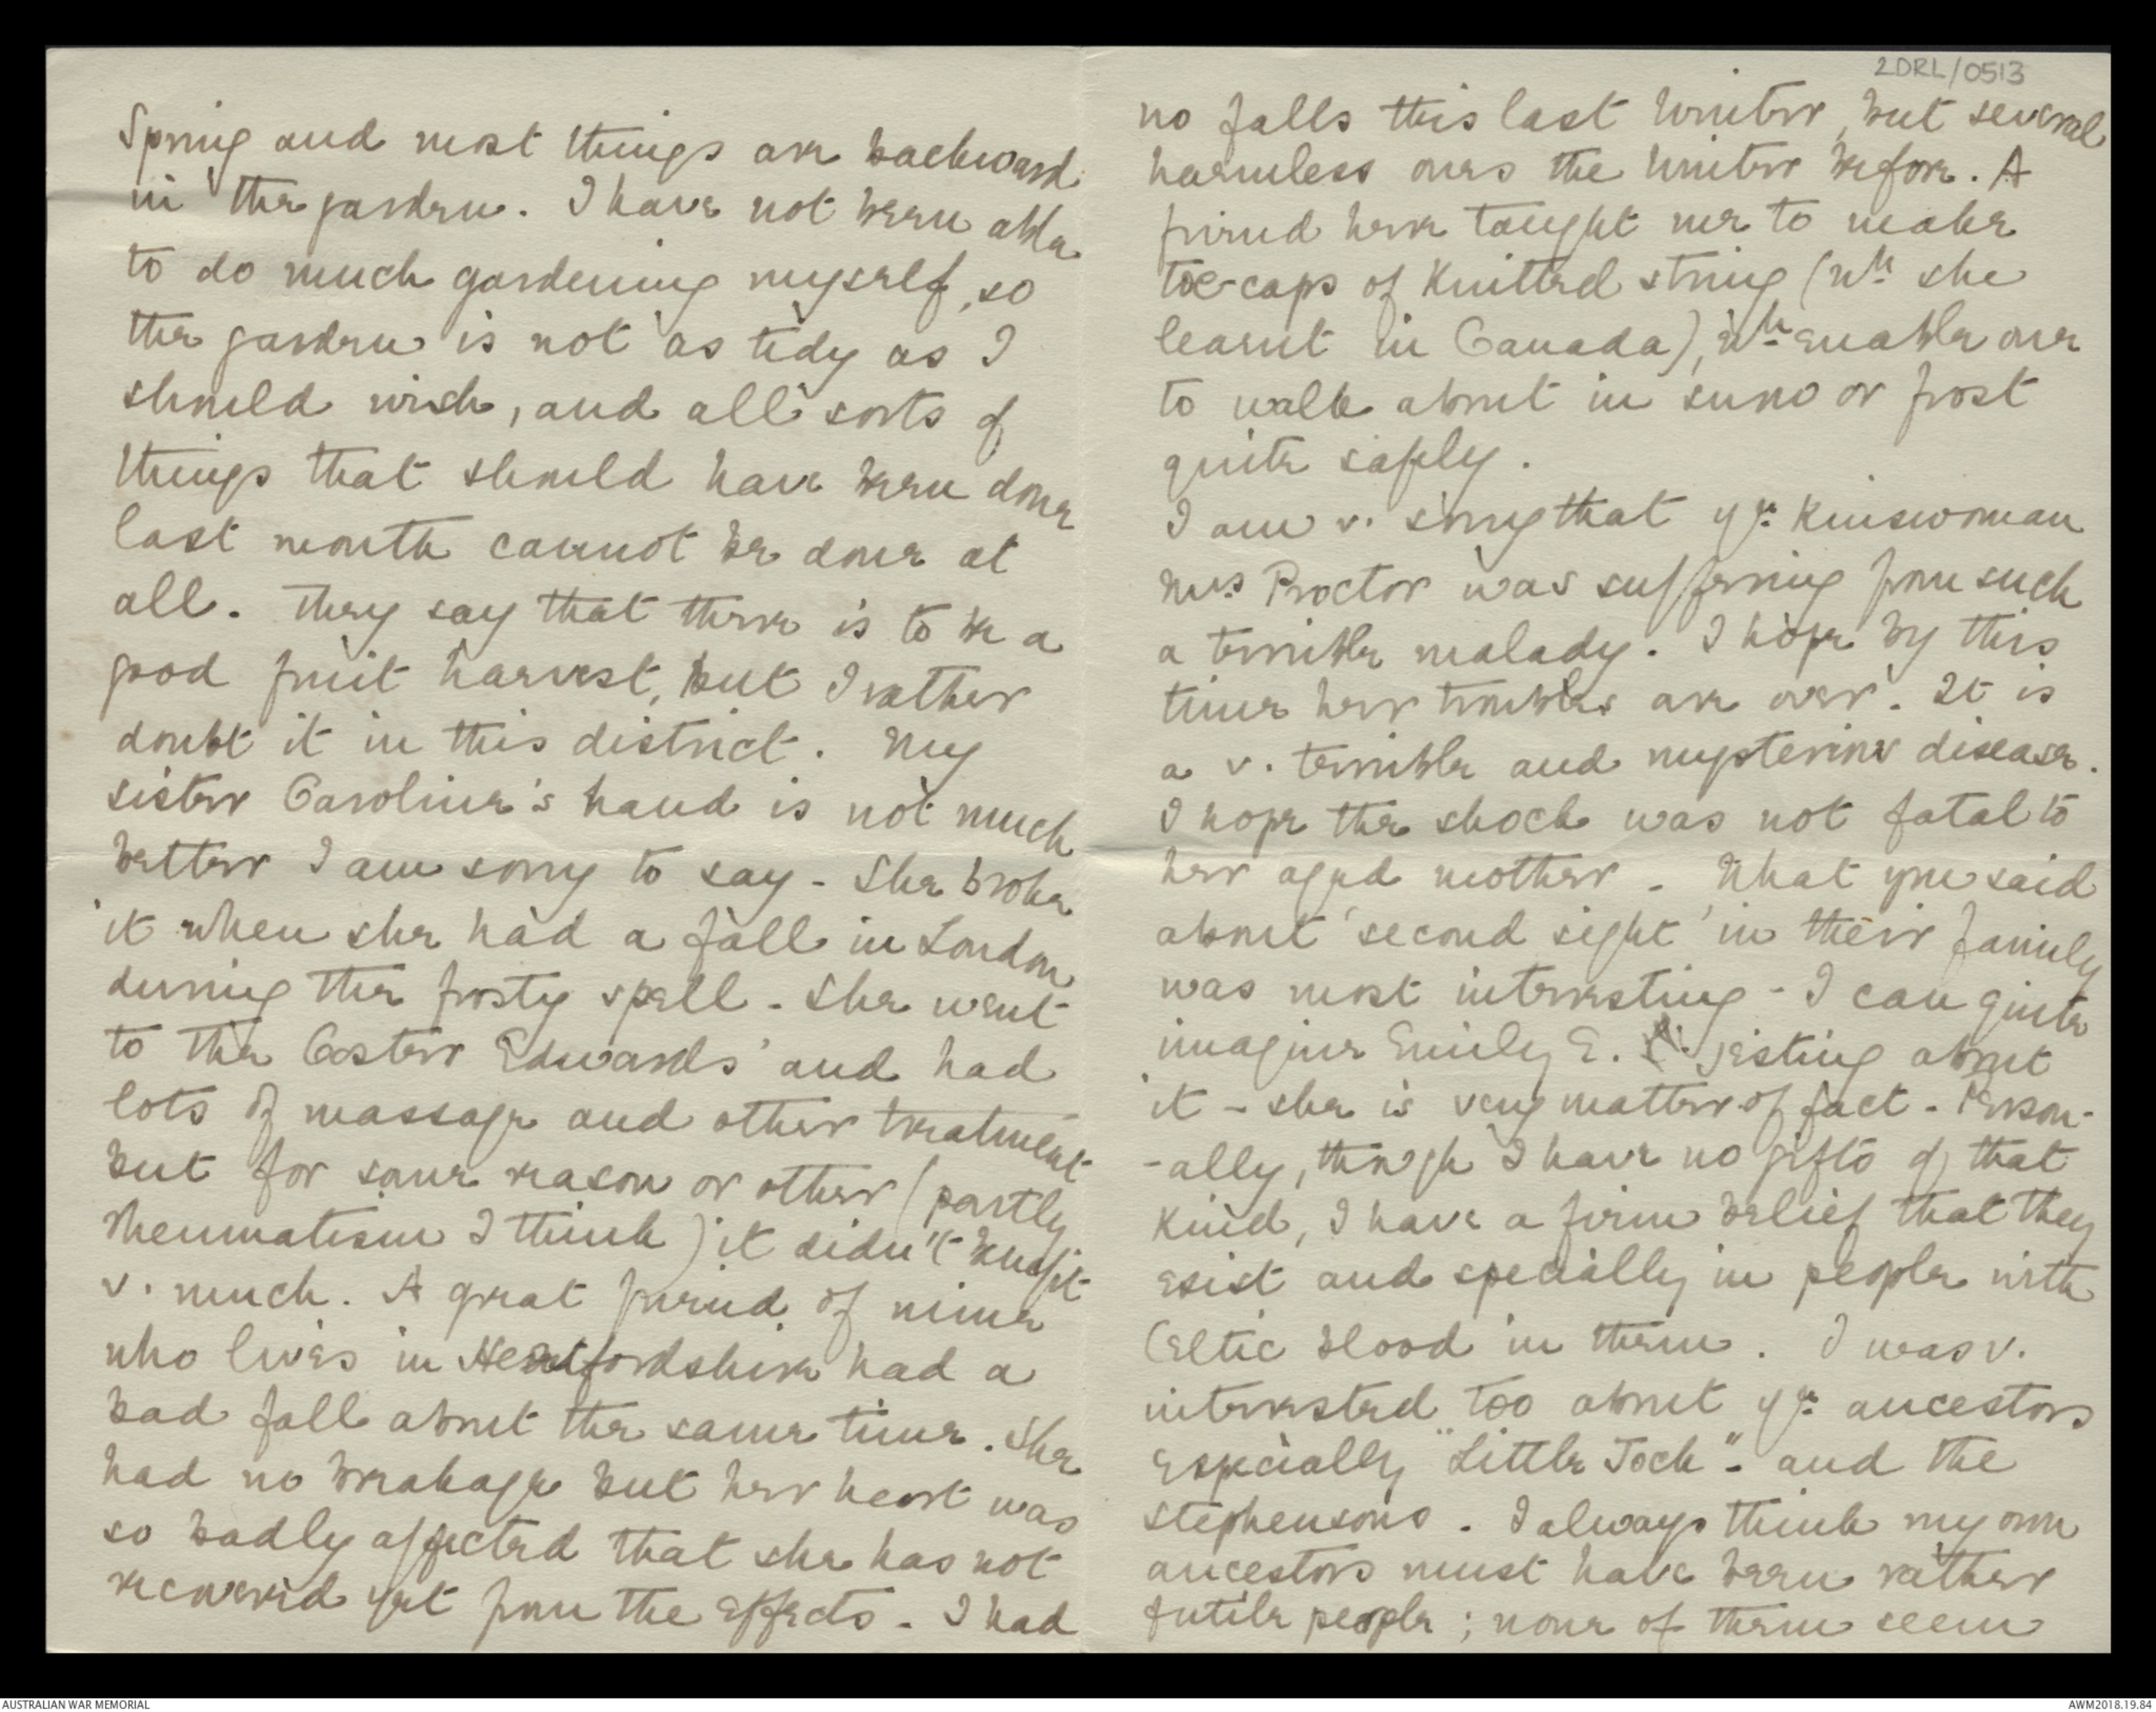 Spring and most things are backward
in the garden. I have not been able
to do much gardening myself, so
the garden is not as tidy as I
should wish, and all sorts of
things that should have been done
last month cannot be done at
all. They say that there is to be a
good fruit harvest, but I rather
doubt it in this district. My
sister Caroline's hand is not much
better I am sorry to say - She broke
it when she had a fall in London
during the frosty spell - She went
to the Coster Edwards' and had
lots of massage and other treatment
but for some reason or other (partly
rheumatism I think) it didn't benefit
v. much. A great friend of mine
who lives in Hertfordshire had a
bad fall about the same time. She
had no breakage but her heart was
so badly affected that she has not
recovered yet from the effects - I had
2DRL/0513
no falls this last winter, but several
harmless ones the winter before. A
friend here taught me to make
toe-caps of knitted string (wh she
learnt in Canada), wh enable one
to walk about in snow or frost
quite safely.
I am v. sorry that yr. kinswoman
Mrs Proctor was suffering from such
a terrible malady. I hope by this
time her troubles are over. It is
a v. terrible and mysterious disease.
I hope the shock was not fatal to
her aged mother - What you said
about 'second sight' in their family
was most interesting - I can quite
imagine Emily E. jesting about
it - she is very matter of fact - Person-
-ally, though I have no gifts of that
kind, I have a firm belief that they
exist and specially in people with
Celtic blood in them. I was v.
interested too about yr. ancestors
especially "Little Jock" - and the
Stephensons. I always think my own
ancestors must have been rather
futile people; none of them seem
AUSTRALIAN WAR MEMORIAL
AWM2018.19.84